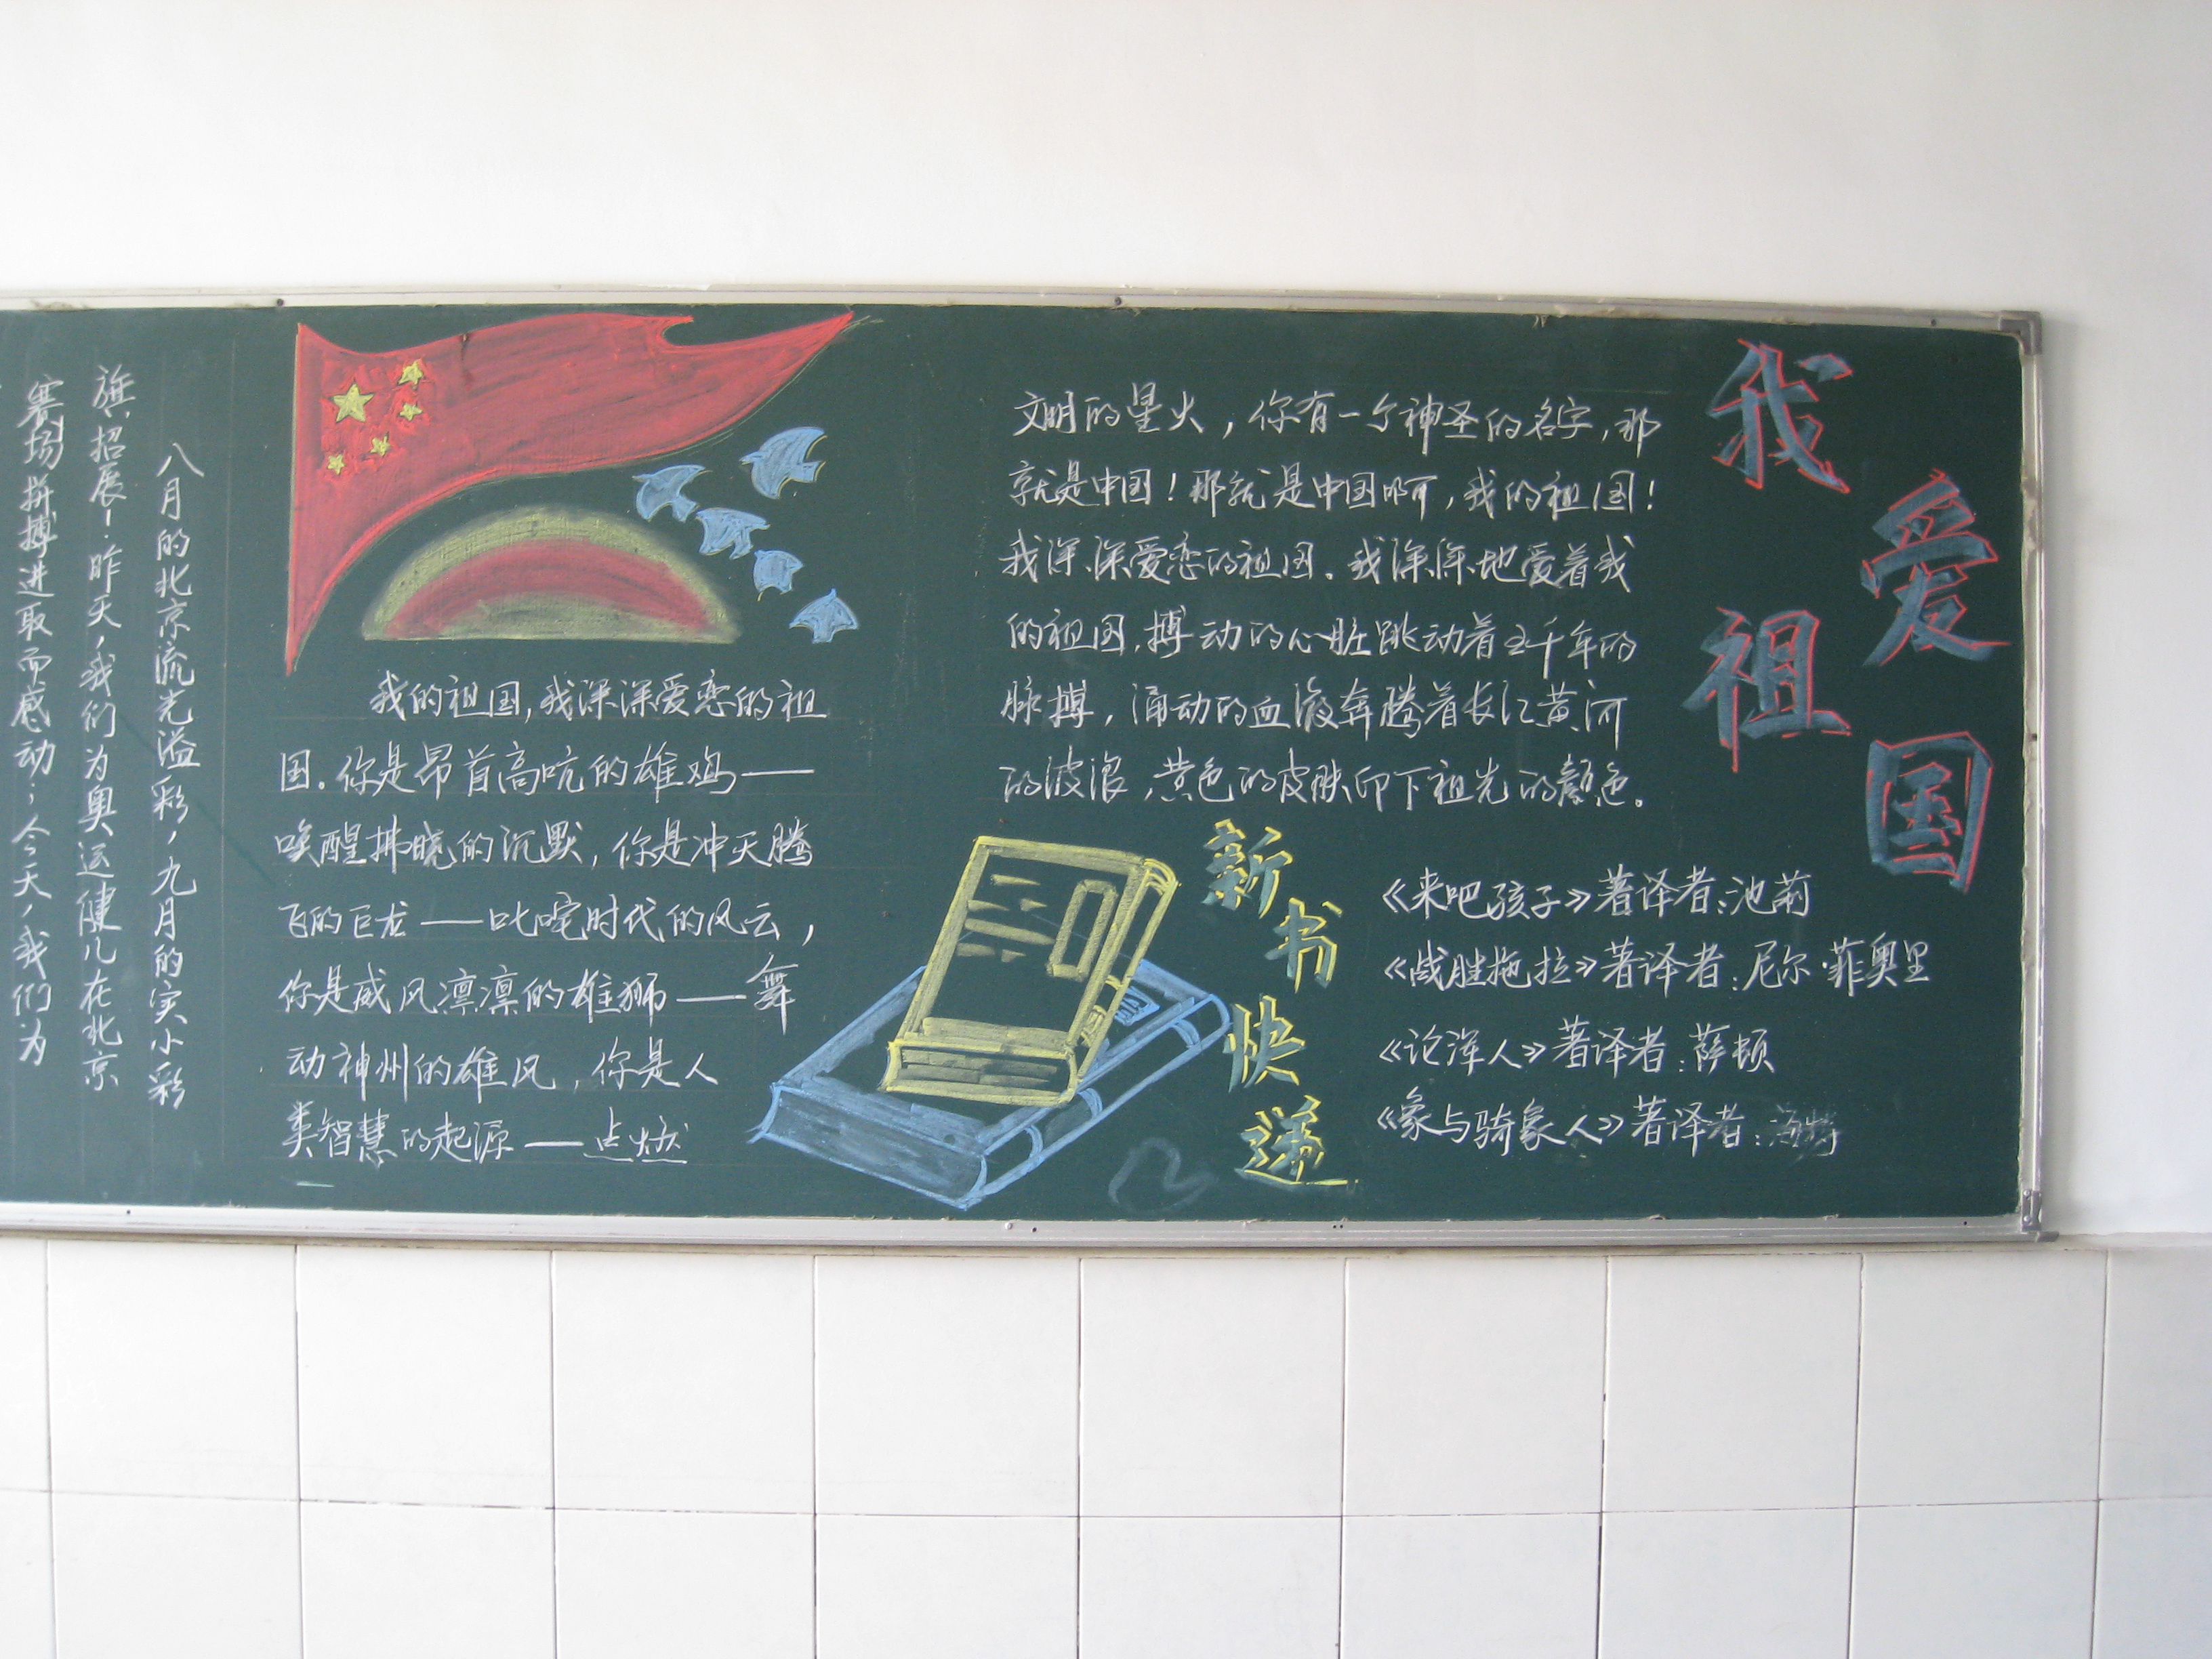 我爱祖国
八月的北京流光溢彩，九月的实小彩
旗招展！昨天，我们为奥运健儿在北京
赛场拼搏进取而感动；今天，我们为
我的祖国，我深深爱恋的祖
国。你是昂首高吭的雄鸡——
唤醒拂晓的沉默，你是冲天腾
飞的巨龙——叱咤时代的风云，
你是威风凛凛的雄狮——舞
动神州的雄风，你是人
类智慧的起源——点燃
文明的星火，你有一个神圣的名字，那
就是中国！那就是中国啊，我的祖国！
我深深爱恋的祖国。我深深地爱着我
的祖国，搏动的心脏跳动着五千年的
脉搏，涌动的血液奔腾着长江黄河
的波浪，黄色的皮肤印下祖先的颜色。
新书快递
《来吧孩子》著译者：池莉
《战胜拖拉》著译者：尼尔·菲奥里
《论浑人》著译者：萨顿
《象与骑象人》著译者：海特